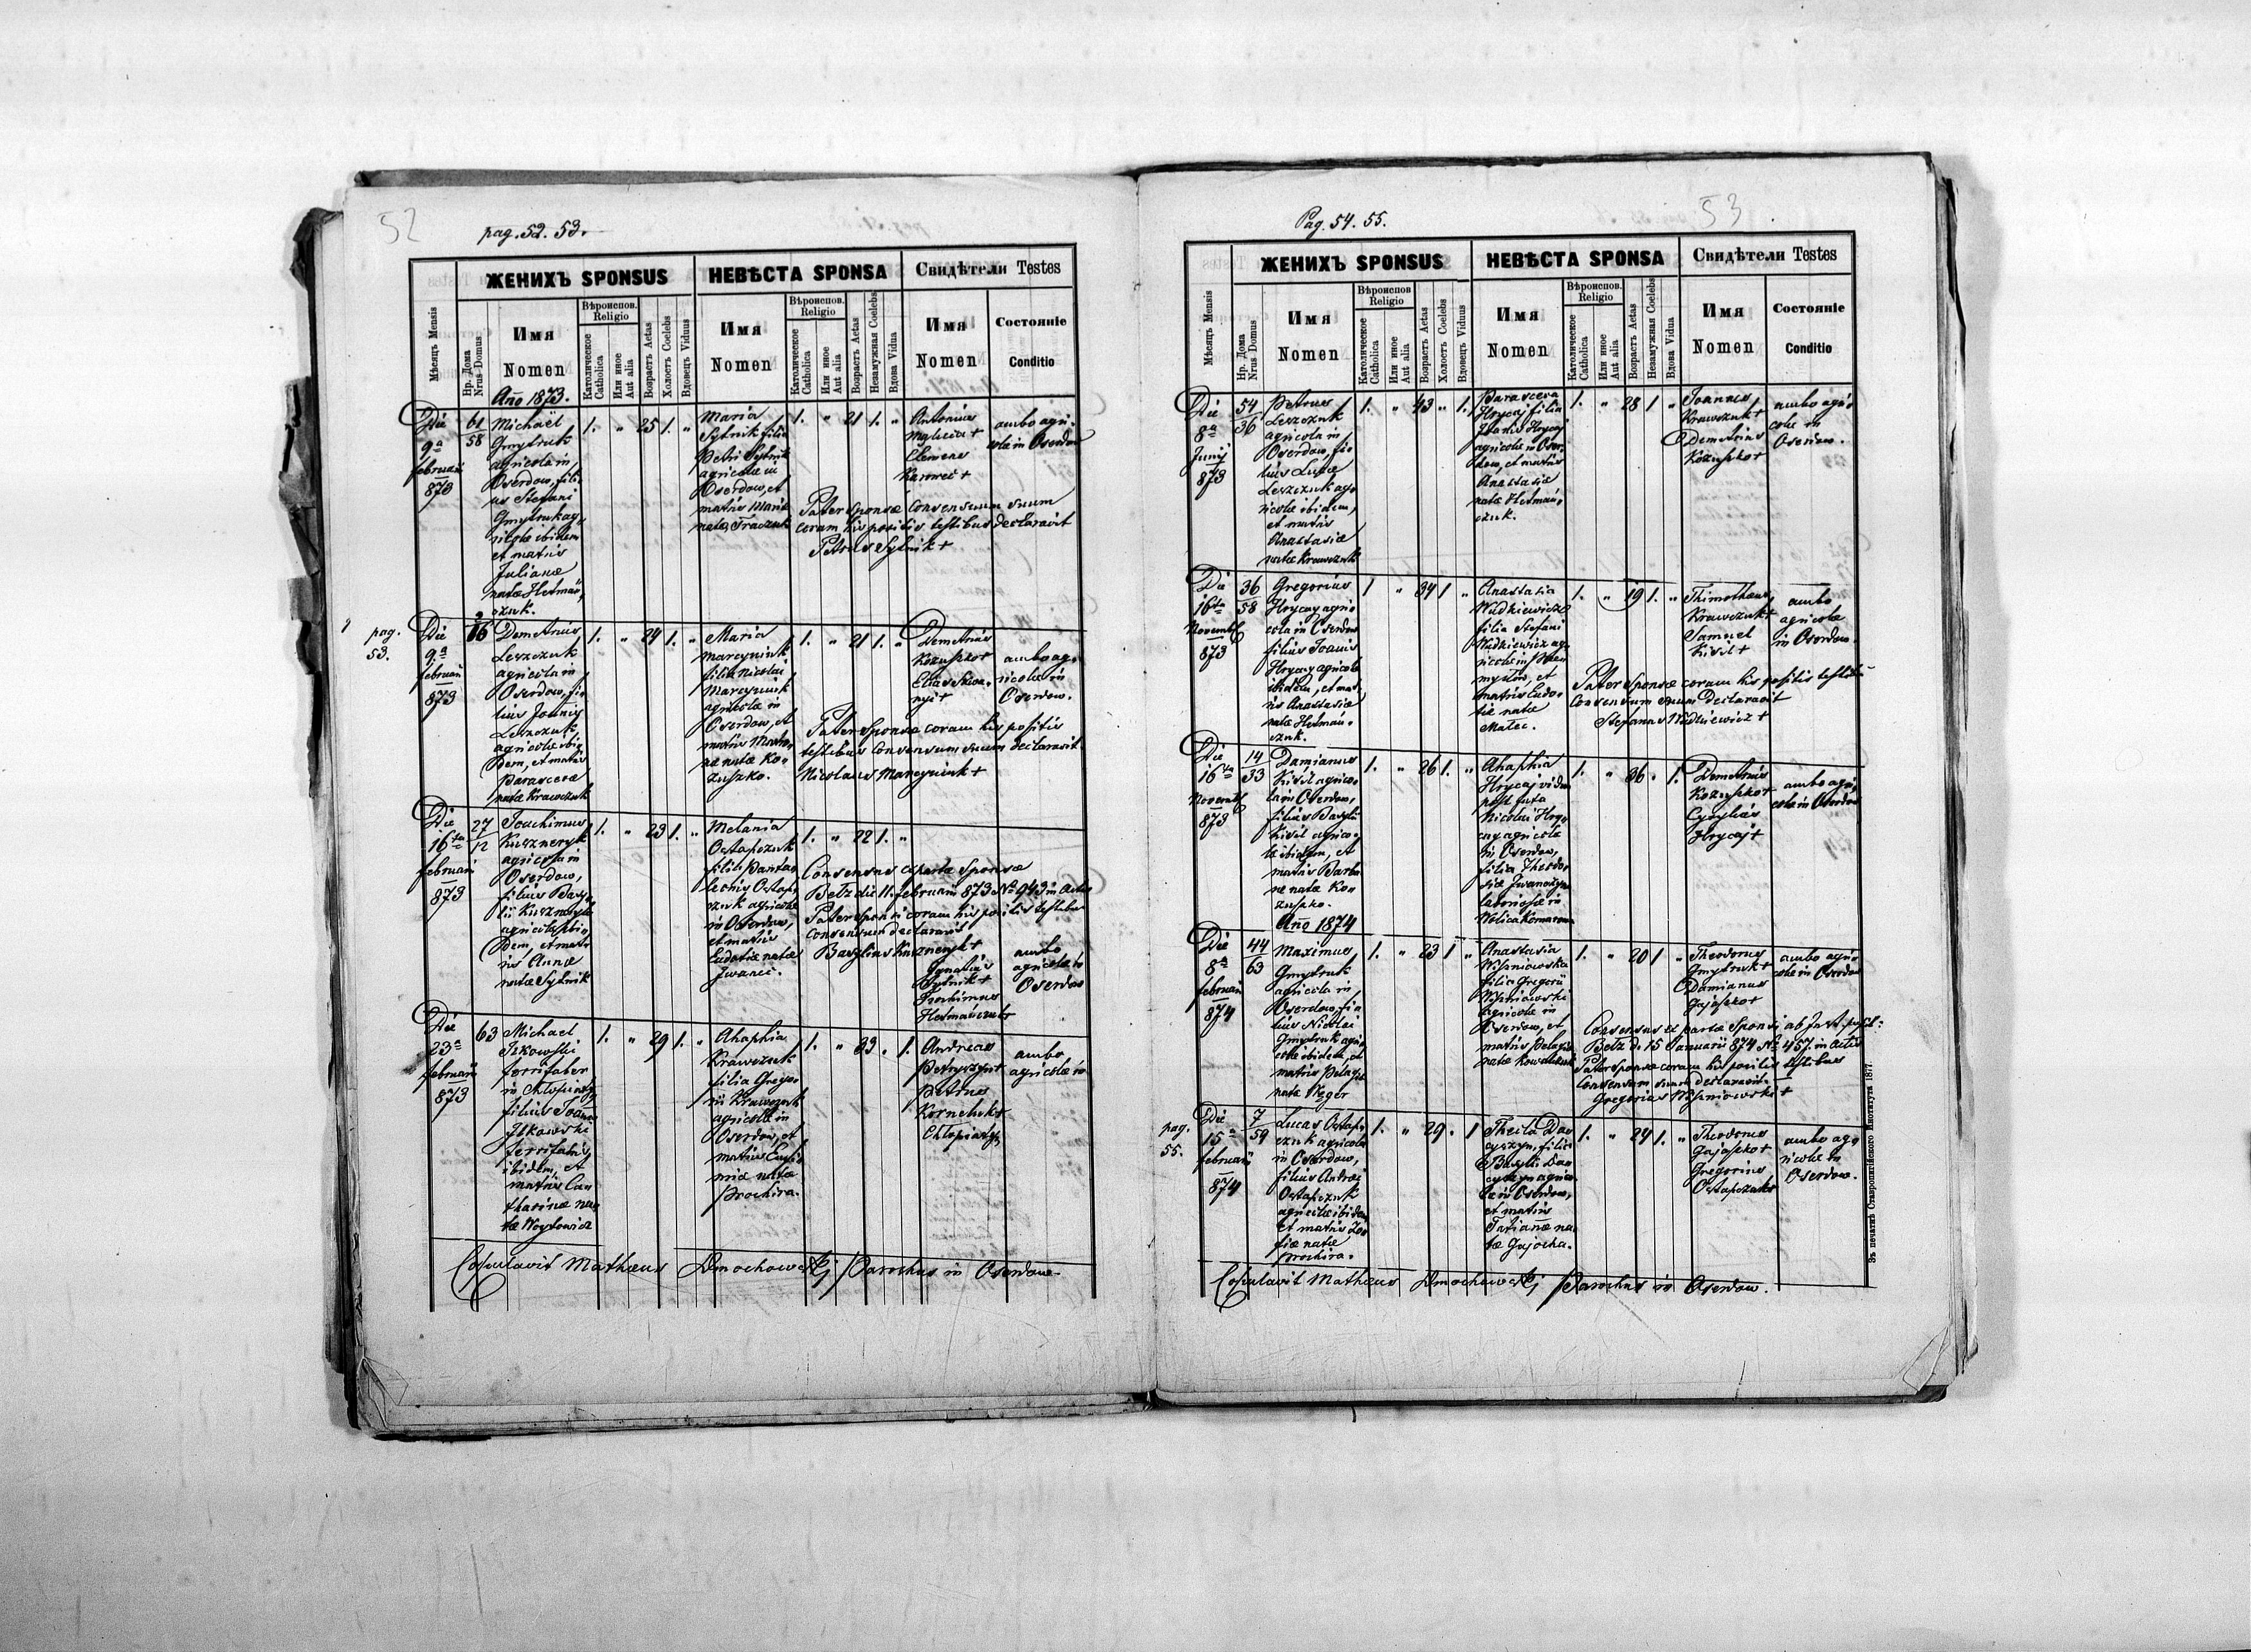 52
pag. 52. 53.
ЖЕНИХЪ SPONSUS
НЕВѢСТА SPONSA
Свидѣтели Testes
Мѣсяцъ Mensis
Нр. Дома
Nrus Domus
Имя
Nomen
Вѣроиспов.
Religio
Католическое
Catholica
Или иное
Aut alia
Возрастъ Aetas
Холостъ Coelebs
Вдовецъ Viduus
Имя
Nomen
Вѣроиспов.
Religio
Католическое
Catholica
Или иное
Aut alia
Возрастъ Aetas
Незамужная Coelebs
Вдова Vidua
Имя
Nomen
Состояніе
Conditio
Año 1873.
Die
9ª
februarii
873
61
58
Michaël
Gmytruk
agricola in
Oserdow, fili
us Stefani
Gmytruk ag
ricolæ ibidem
et matris
Julianæ
natæ Hetmań
czuk.
1. " 25 1. "
Maria
Sytnik filia
Petri Sytnik
agricolæ in
Oserdow, et
matris Mariæ
natæ Traczuk
1. " 21 1. "
Antonius
+
Clemens
+
ambo agri-
colæ in Oserdow
Pater Sponsæ Consensum suum
coram his positis testibus declaravit
Petrus Sytnik +
pag.
53.
Die
9ª
februarii
873
16
Demetrius
Leszczuk
agricola in
Oserdow, fi
lius Joannis
Leszczuk
agricolæ ibi
dem, et matris
Parascevæ
natæ Krawczuk
1. " 24 1. "
Maria
Marcyniuk
filia Nicolai
Marcyniuk
agricolæ in
Oserdow, et
matris
natæ Ko
zuszko.
1. " 21 1. "
Demetrius
Kozuszko +
Elias
+
ambo ag
ricolæ in
Oserdow.
Pater Sponsæ coram his positis
testibus consensum suum declaravit
Nicolaus Marcyniuk +
Die
16ta
februarii
873
27
12
Joachimus
Kuszneryk
agricola in
Oserdow,
filius Basy
lii Kuszneryk
agricolæ ibi
dem, et mat
ris Annæ
natæ Sytnik
1. " 23 1. "
Melania
Ostapczuk
filia Panta
leonis Ostap
czuk agricolæ
in Oserdow,
et matris
Eudociæ natæ
Iwaneć.
1. " 22 1. "
Consensus a parte Sponsæ
Betz die 11. februarii 873 Nº 943 in actis
Pater Sponsi coram his positis testibus
consensum declaravit
Basylius Kuszneryk +
Ignatius
Sytnik +
Joachimus
Hetmańczuk +
ambo
agricolæ in
Oserdow
Die
23ª
februarii
873
63
Michael
Itkowski
ferrifaber
in Chłopiatyn
filius Joan
Itkowski
ferrifabri
ibidem, et
matris Ca
tharinæ na
tæ Woytowicz
1. " 29 1. "
Ahaphia
Krawczuk
filia Grego
rii Krawczuk
agricolæ in
Oserdow, et
matris
natæ
Prochira.
1. " 33 . 1.
Andreas
Petryszyn +
Petrus
Korneluk +
Chłopiatyn
ambo
agricolæ in
Copulavit Mathæus Dmochowskij Parochus in Oserdow
53
Pag. 54. 55.
ЖЕНИХЪ SPONSUS
НЕВѢСТА SPONSA
Свидѣтели Testes
Мѣсяцъ Mensis
Нр. Дома
Nrus Domus
Имя
Nomen
Вѣроиспов.
Religio
Католическое
Catholica
Или иное
Aut alia
Возрастъ Aetas
Холостъ Coelebs
Вдовецъ Viduus
Имя
Nomen
Вѣроиспов.
Religio
Католическое
Catholica
Или иное
Aut alia
Возрастъ Aetas
Незамужная Coelebs
Вдова Vidua
Имя
Nomen
Состояніе
Conditio
Die
8ª
Junij
873
54
36
Petrus
Leszczuk
agricola in
Oserdow, fi
lius Lucæ
Leszczuk ag
ricolæ ibidem,
et matris
Anastasiæ
natæ Krawczuk
1. " 43 " 1.
Parasceva
Hrycaj filia
Joanis Hrycaj
agricolæ in Oser
dow, et matris
Anastasiæ
natæ Hetmań
czuk.
1. " 28 1 "
Joannes
Krawczuk +
Demetrius
Kozuszko +
ambo agri
colæ in
Oserdow.
Die
16ta
Novemb
873
36
58
Gregorius
Hrycay agri
cola in Oserdow
filius Joanis
Hrycay agricolæ
ibidem, et mat
ris Anastasiæ
natæ Hetmań
czuk.
1 " 34 1 "
Anastasia
Wudkiewicz
filia Stefani
Wudkiewicz ag
ricolæ in
et
matris Eudo
tiæ natæ
Matec.
1. " 19 1. "
Thimotheus
Krawczuk +
Samuel
Kisil +
ambo
agricolæ
in Oserdow.
Pater Sponsæ coram his positis testibus
Consensum suum declaravit
Stefanus Wudkiewicz +
Die
16ta
Novemb
873
14
33
Damianus
Kisil agrico
la in Oserdow,
filius Basylii
Kisil agrico
læ ibidem, et
matris Barba
ræ natæ Ko
zuszko.
1. " 26 1. "
Ahaphia
Hrycaj vidua
post
Nicolai Hry
cay agricolæ
in Oserdow,
filia Theodo
siæ
in
Wolica Komarowa
1. " 36 . 1.
Demetrius
Kozuszko +
Cyryllus
Hrycaj +
ambo agri
colæ in Oserdow
Año 1874
Die
8ª
februarii
874
44
63
Maximus
Gmytruk
agricola in
Oserdow, fi
lius Nicolai
Gmytruk agri
colæ ibidem, et
matris Pelagiæ
natæ Weger
1. " 23 1 "
Anastasia
Wiszniowska
filia Gregorii
Wiszniowski
agricolæ in
Oserdow, et
matris Pelagiæ
natæ Kowalczuk
1. " 20 1 "
Theodorus
Gmytruk +
Damianus
Gajoszko +
ambo agri
colæ in Oserdow
Consensus ex parte Sponsi ab
Betz d. 15 Januarii 874 Nº 457 in actis
Pater Sponsæ coram his positis testibus
Consensum suum declaravit
Gregorius Wiszniowski +
pag.
55.
Die
15ª
februarii
874
7
59
Lucas Ostap
czuk agricola
in Oserdow,
filius Andreæ
Ostapczuk
agricolæ ibidem
et matris Zo
fiæ natæ
Prochira.
1. " 29 . 1
Thecla Da
cyszyn, filia
Basylii Da
cyszyn agrico
læ in Oserdow,
et matris
Tatianæ na
tæ Gajocha.
1. " 24 1. "
Theodorus
Gajoszko +
Gregorius
Ostapczuk +
ambo ag
ricolæ in
Oserdow.
Copulavit Mathæus Dmochowskij Parochus in Oserdow.
Въ печатнѣ Ставропигійского Института 1877.